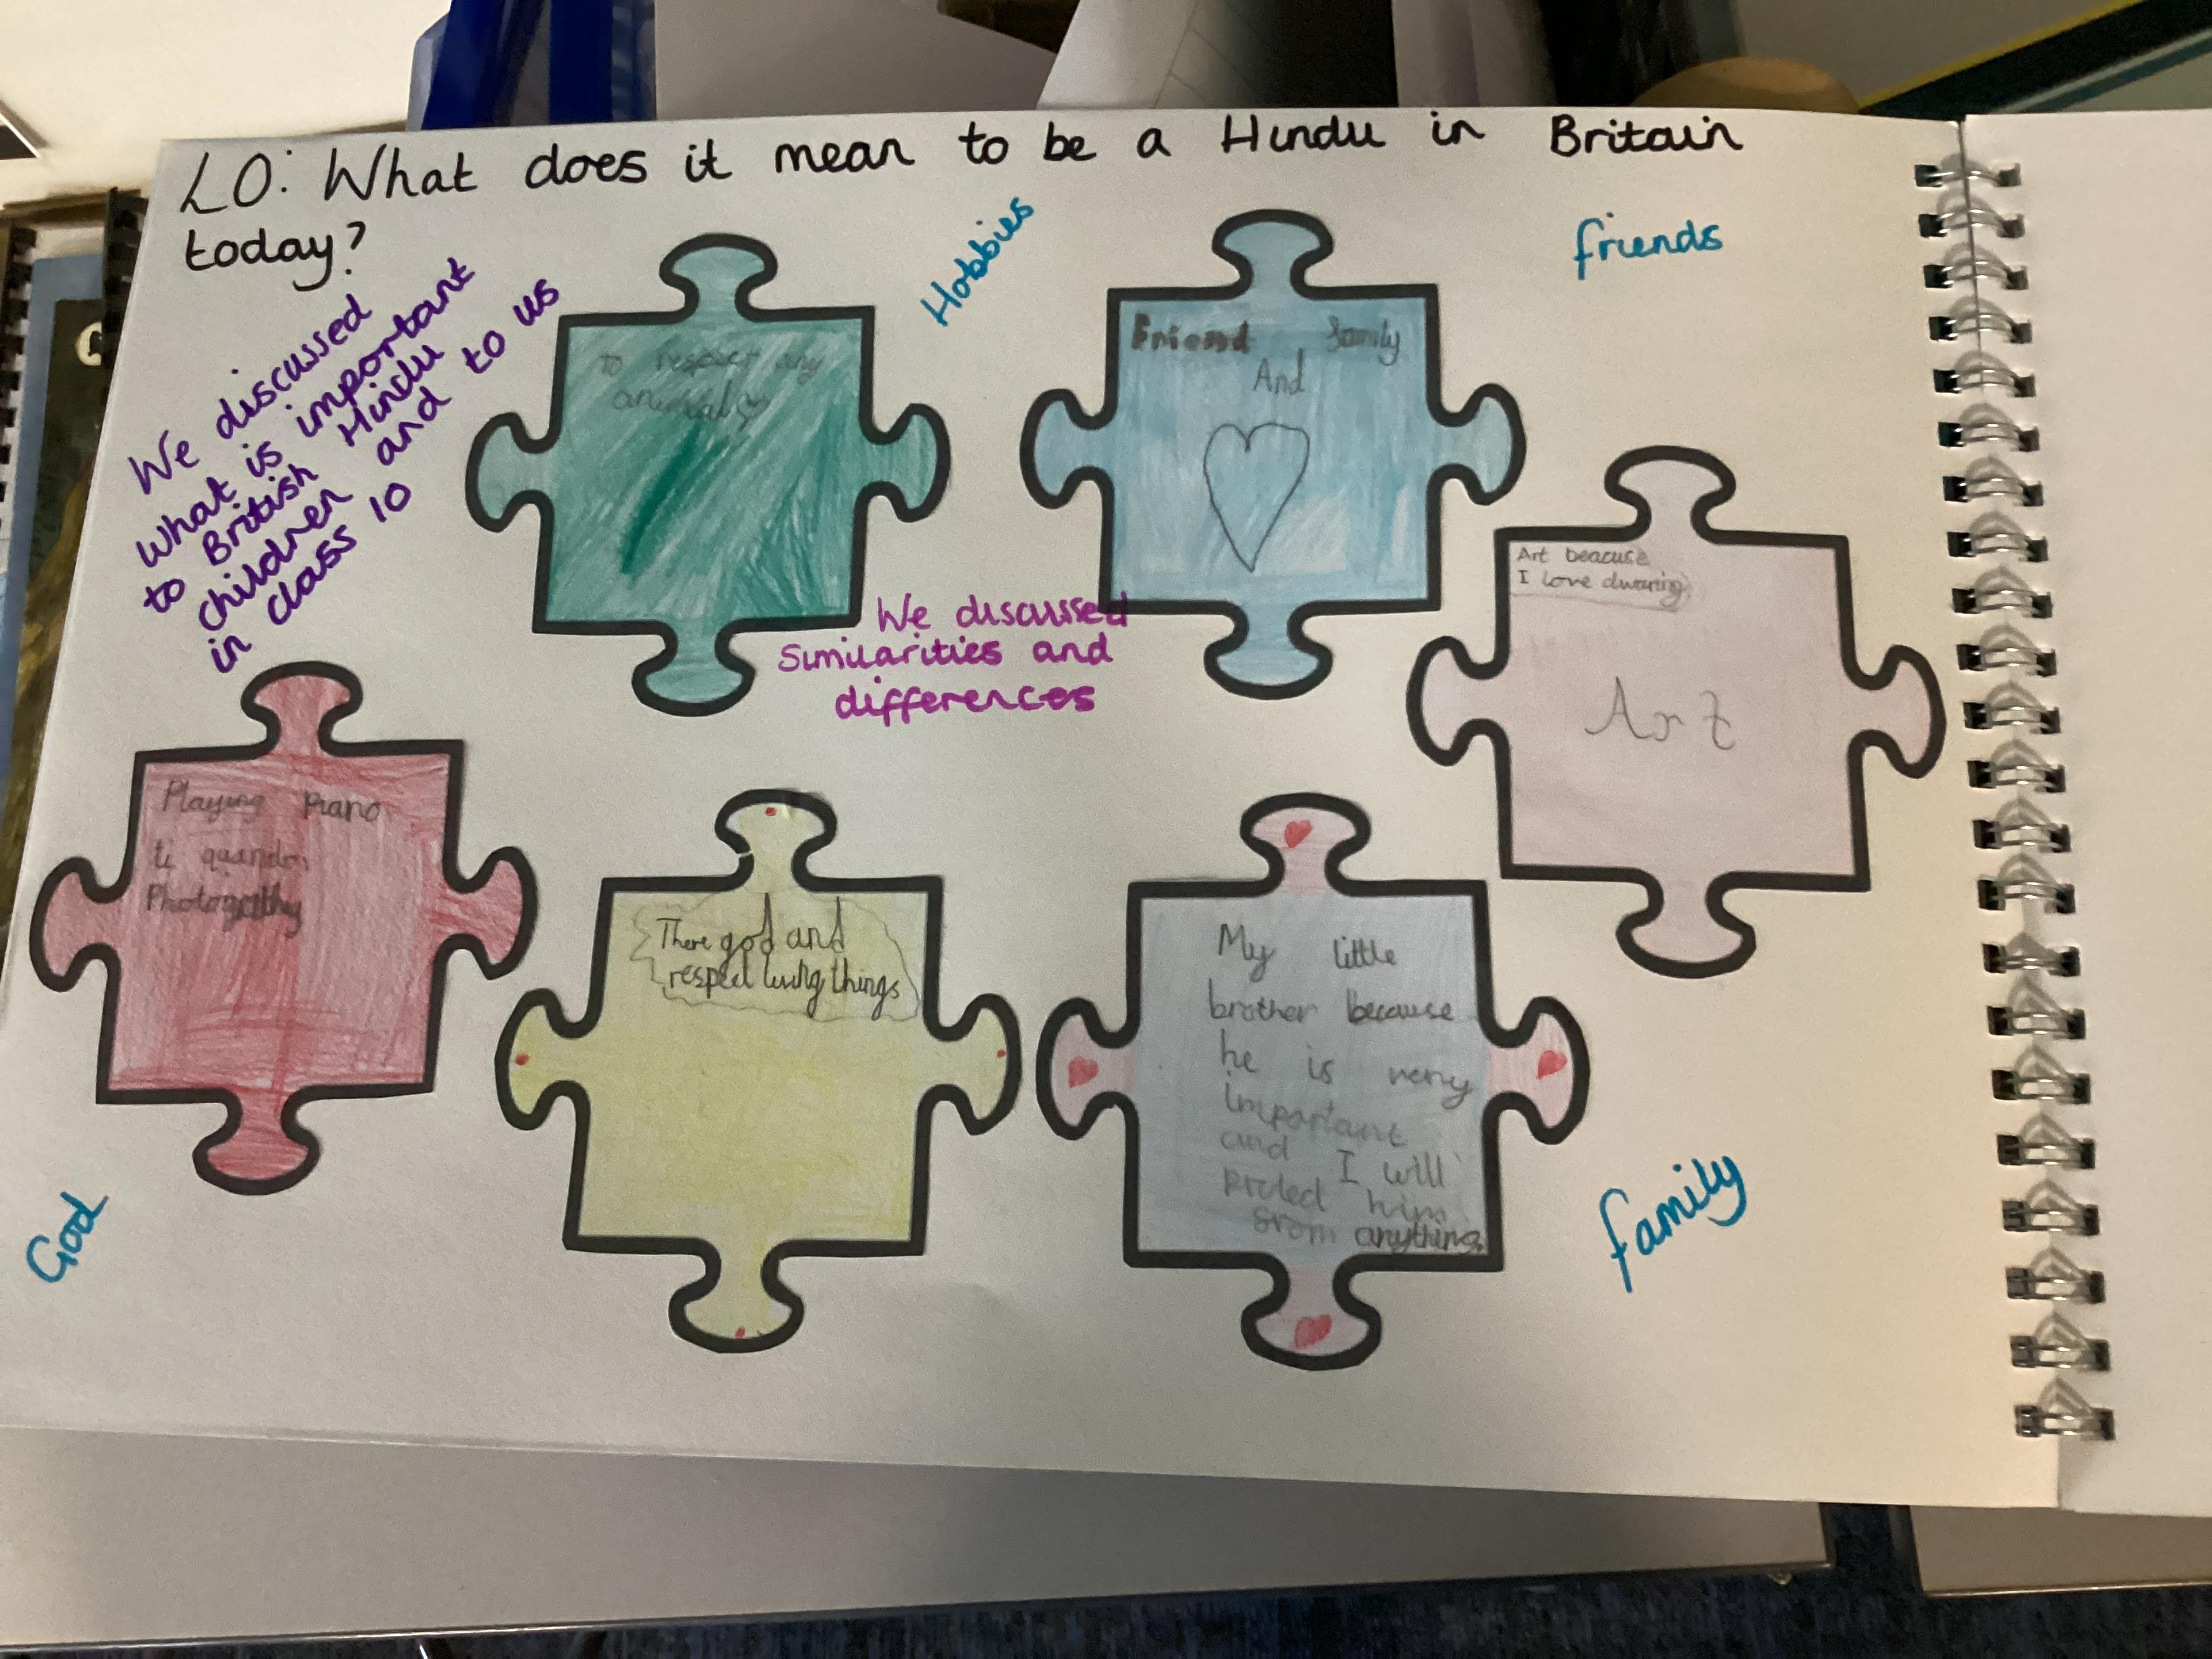 LO: What does it mean to be a Hindu in Britain
today?
We discussed
what is important
to British Hindu
children and to us
in class 10
to respect any
animal
Hobbies
Friend family
And
friends
We discussed
similarities and
differences
Art beacuse
I love dwaring
Art
Playing Piano
Photography
There god and
respect living things
My little
brother because
he is very
important
and I will
protect him
from anything.
God
family